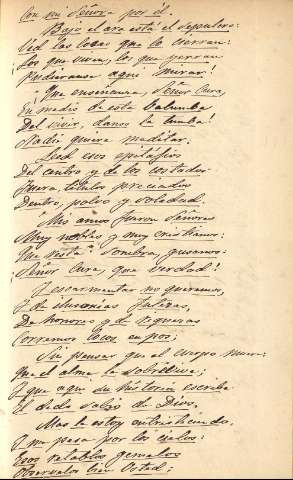 Con mi Señora por él.
Bajo el ara está el sepulcro:
Ved las losas que lo cierran:
¡Los que viven, los que yerran
Pudieranse aqui mirar!
¡Que enseñanza, Señor Cura,
En medio de esta balumba
Del vivir, danos la tumba!
Nadie quiere meditar.
Leed esos epitafios
Del centro y de los costados
Fuera, títulos preciados
Dentro, polvo y soledad.
Mis amos fueron Señores
Muy nobles y muy cristianos:
¡Que resta? sombra, gusanos:
¡Señor Cura, que verdad!
Y escarmentar no queremos,
Y de ilusiones fatuas,
De honores y de riquezas
Corremos locos en pos;
Sin pensar que el cuerpo muere:
Que el alma le sobrevive;
Y que aqui su historia escribe
El dedo sabio de Dios.
Mas le estoy entristeciendo,
Y me pesa por los cielos:
Esos retablos gemelos
Observelos bien Usted;